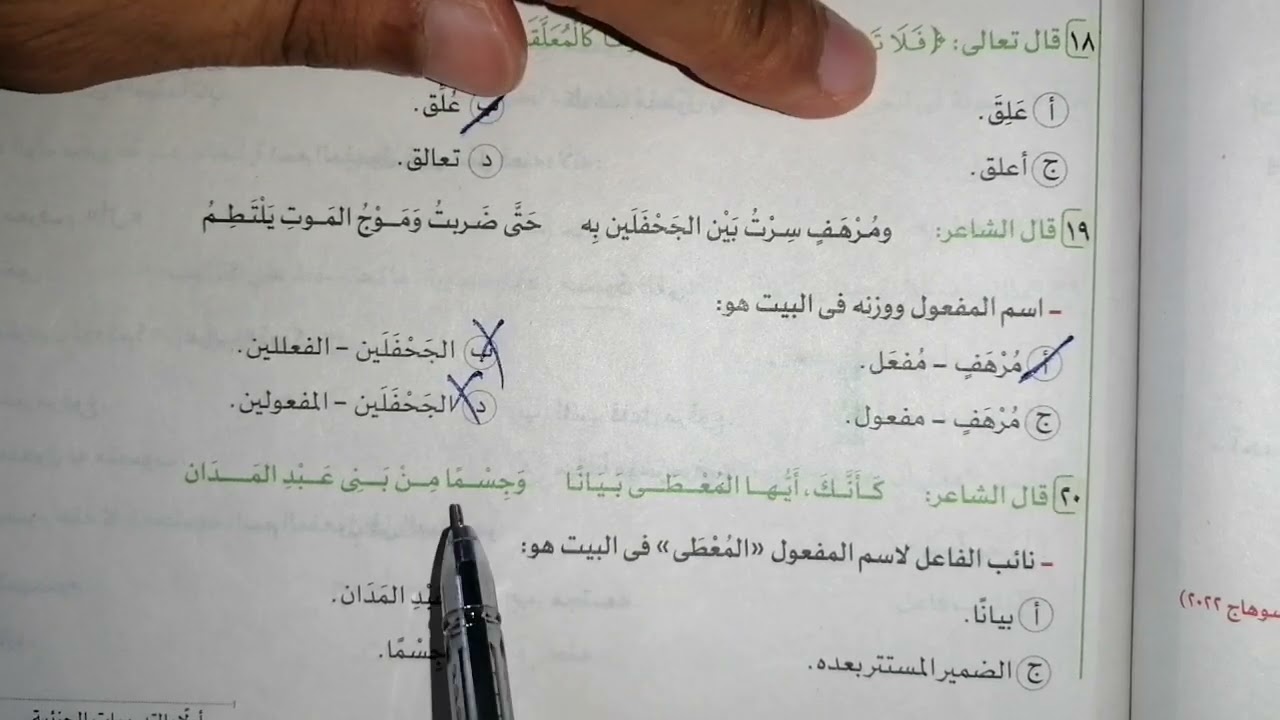 ١٨ قال تعالى: ﴿ فَلَا كَالْمُعَلَّقَ
أ عَلِقَ. ب عُلِّق.
ج أعلق. د تعالق.
١٩ قال الشاعر: ومُرْهَفٍ سِرْتُ بَيْن الجَحْفَلَين بِه حَتَّى ضَربتُ وَمَوْجُ المَوتِ يَلْتَطِمُ
- اسم المفعول ووزنه فى البيت هو:
أ مُرْهَفٍ - مُفعَل. ب الجَحْفَلَين - الفعللين.
ج مُرْهَفٍ - مفعول. د الجَحْفَلَين - المفعولين.
٢٠ قال الشاعر: كَأَنَّكَ، أَيُّها المُعْطَى بَيَانًا وَجِسْمًا مِنْ بَنِى عَبْدِ المَدَان
- نائب الفاعل لاسم المفعول «المُعْطَى» فى البيت هو:
أ بيانًا. المَدَان.
ج الضمير المستتر بعده. جِسْمًا.
سوهاج ٢٠٢٢)